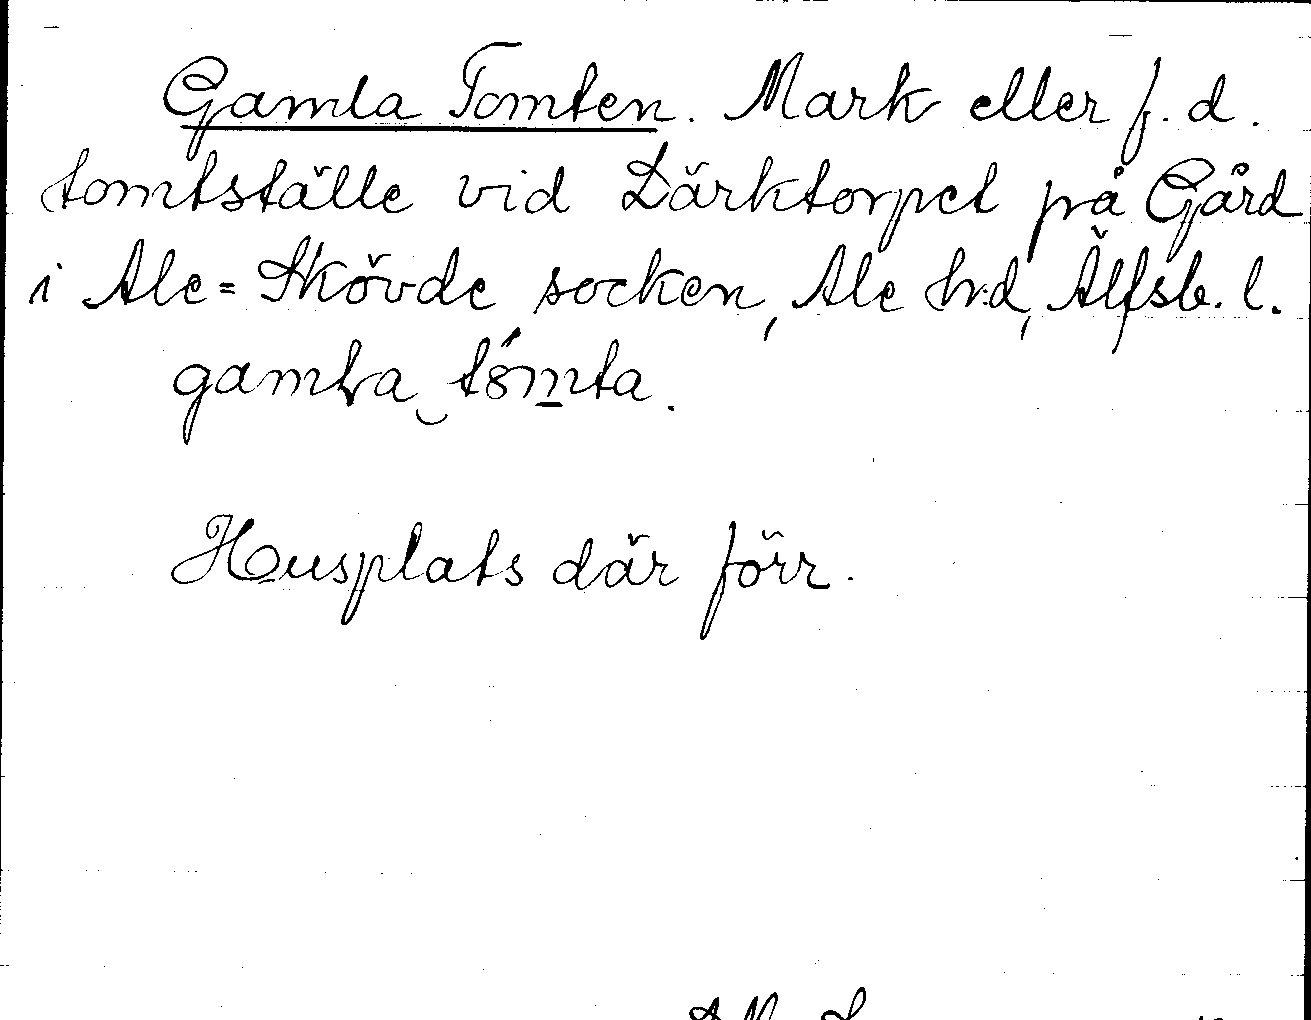 Gamla Tomten. Mark eller f.d.
tomtställe vid Lärktorpet på Gård
i Ale=Skövde socken, Ale hd, Älfsb. l.
gamla tómta.
Husplats där förr.